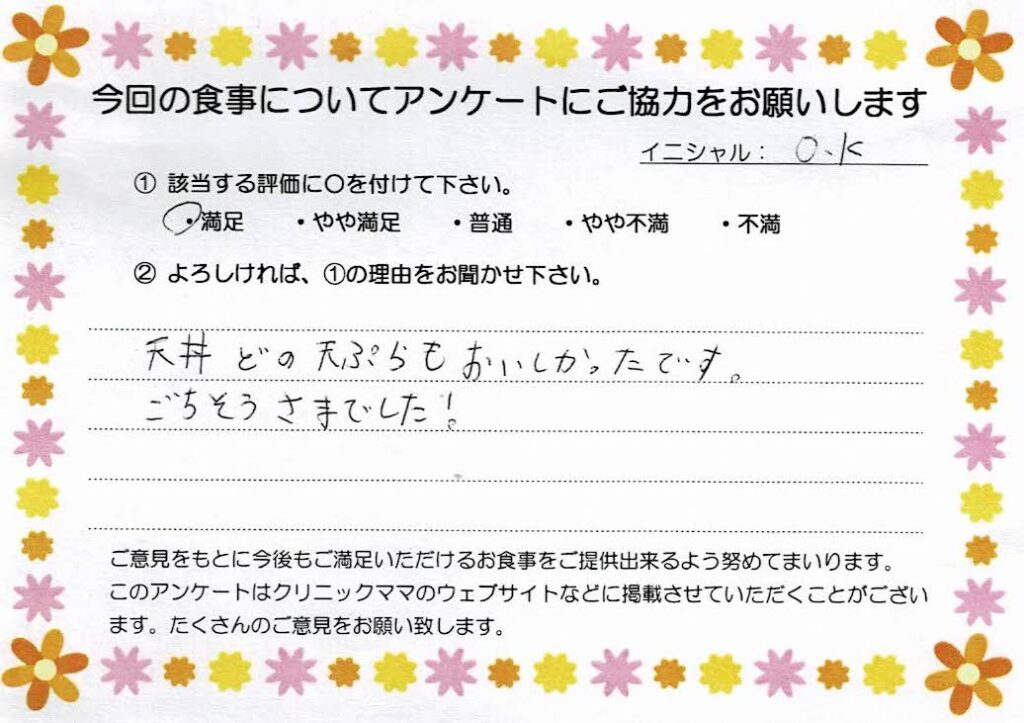 今回の食事についてアンケートにご協力をお願いします
イニシャル： O.K
① 該当する評価に〇を付けて下さい。
・満足 ・やや満足 ・普通 ・やや不満 ・不満
② よろしければ、①の理由をお聞かせ下さい。
天丼 どの天ぷらもおいしかったです。
ごちそうさまでした！
ご意見をもとに今後もご満足いただけるお食事をご提供出来るよう努めてまいります。
このアンケートはクリニックママのウェブサイトなどに掲載させていただくことがござい
ます。たくさんのご意見をお願い致します。